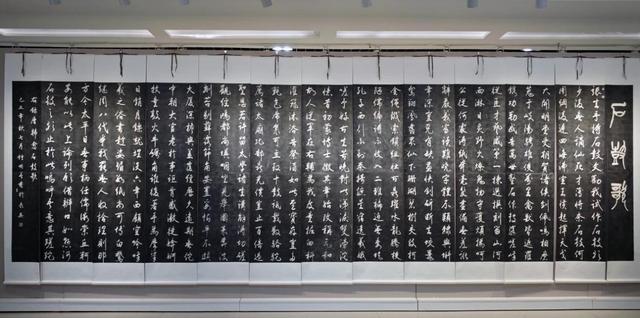 石鼓歌
張生手持石鼓文勸我試作石鼓歌
少陵無人謫仙死才薄將奈石鼓何
周綱淩遲四海沸宣王憤起揮天戈
大開明堂受朝賀諸侯劍佩鳴相磨
蒐于岐陽騁雄俊萬里禽獸皆遮羅
鐫功勒成告萬世鑿石作鼓隳嵯峨
從臣才藝咸第一揀選撰刻留山阿
雨淋日炙野火燎鬼物守護煩撝呵
公從何處得紙本毫髮盡備無差訛
辭嚴義密讀難曉字體不類隸與蝌
年深豈免有缺畫快劍斫斷生蛟鼉
鸞翔鳳翥眾仙下珊瑚碧樹交枝柯
金繩鐵索鎖紐壯古鼎躍水龍騰梭
陋儒編詩不收入二雅褊迫無委蛇
孔子西行不到秦掎摭星宿遺羲娥
嗟予好古生苦晚對此涕淚雙滂沱
憶昔初蒙博士徵其年始改稱元和
故人從軍在右輔為我度量掘臼科
濯冠沐浴告祭酒如此至寶存豈多
氈包席裹可立致十鼓祇載數駱駝
薦諸太廟比郜鼎光價豈止百倍過
聖恩若許留太學諸生講解得切磋
觀經鴻都尚填咽坐見舉國來奔波
剜苔剔蘚露節角安置妥帖平不頗
大廈深簷與蓋覆經歷久遠期無佗
中朝大官老於事詎肯感激徒媕婀
牧童敲火牛礪角誰復著手為摩挲
日銷月鑠就埋沒六年西顧空吟哦
羲之俗書趁姿媚數紙尚可博白鵝
繼周八代爭戰罷無人收拾理則那
方今太平日無事柄任儒術崇丘軻
安能以此上論列願借辨口如懸河
石鼓之歌止於此嗚呼吾意其蹉跎
右錄唐韓愈石鼓歌